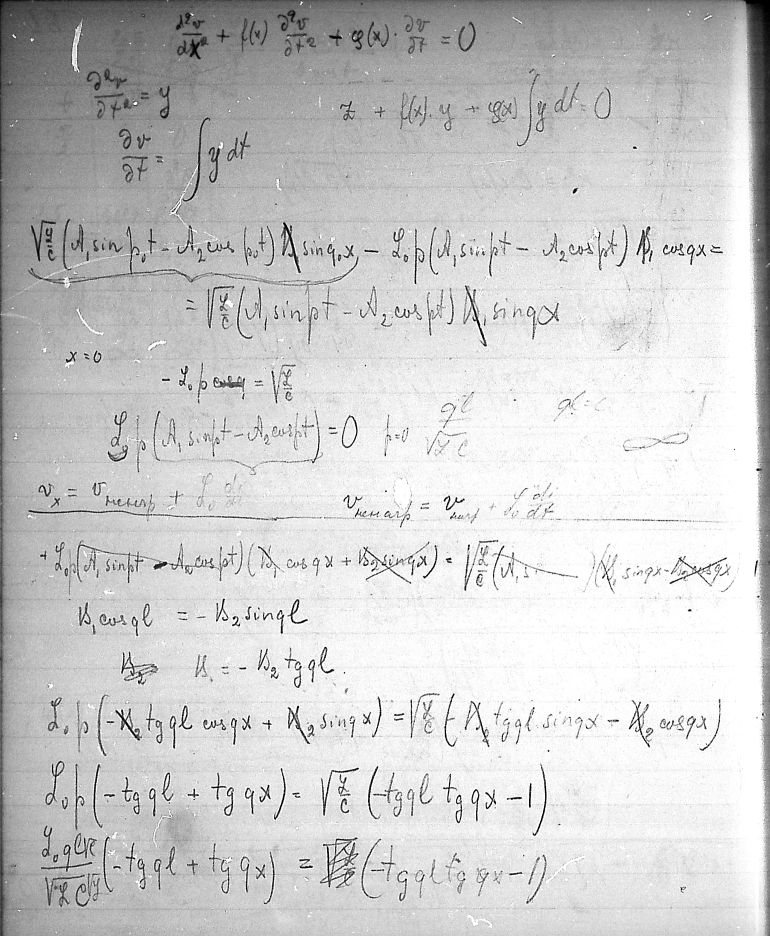 ∂²v/∂x² + f(x) ∂²v/∂t² + φ(x)·∂v/∂t = 0
∂²v/∂t² = y
z + f(x)·y + φ(x)∫y dt = 0
∂v/∂t = ∫y dt
√(L/C) (A₁sin p₀t − A₂cos p₀t) B₁ sin q₀x − L₀p(A₁sin pt − A₂cos pt) B₁ cos qx =
= √(L/C) (A₁sin pt − A₂cos pt) B₁ sin qx
x=0
− L₀p = √(L/C)
L₀p (A₁sin pt − A₂cos pt) = 0 p=0 ql √LC
∞
vₓ = v ненагр + L₀ di/dt
v ненагр = v нагр + L₀ di/dt
+ L₀p(A₁sin pt − A₂cos pt)(B₁ cos qx + B₂ sin qx) = √(L/C) (A₁s )(B₁ sin qx − B₂ cos qx)
B₁cos ql = − B₂ sin ql
B₂ B₁ = − B₂ tg ql
L₀p (−B₂ tg ql cos qx + B₂ sin qx) = √(L/C) (−B₂ tg ql sin qx − B₂ cos qx)
L₀p (−tg ql + tg qx) = √(L/C) (−tg ql tg qx − 1)
(−tg ql + tg qx) = (−tg ql tg qx − 1)